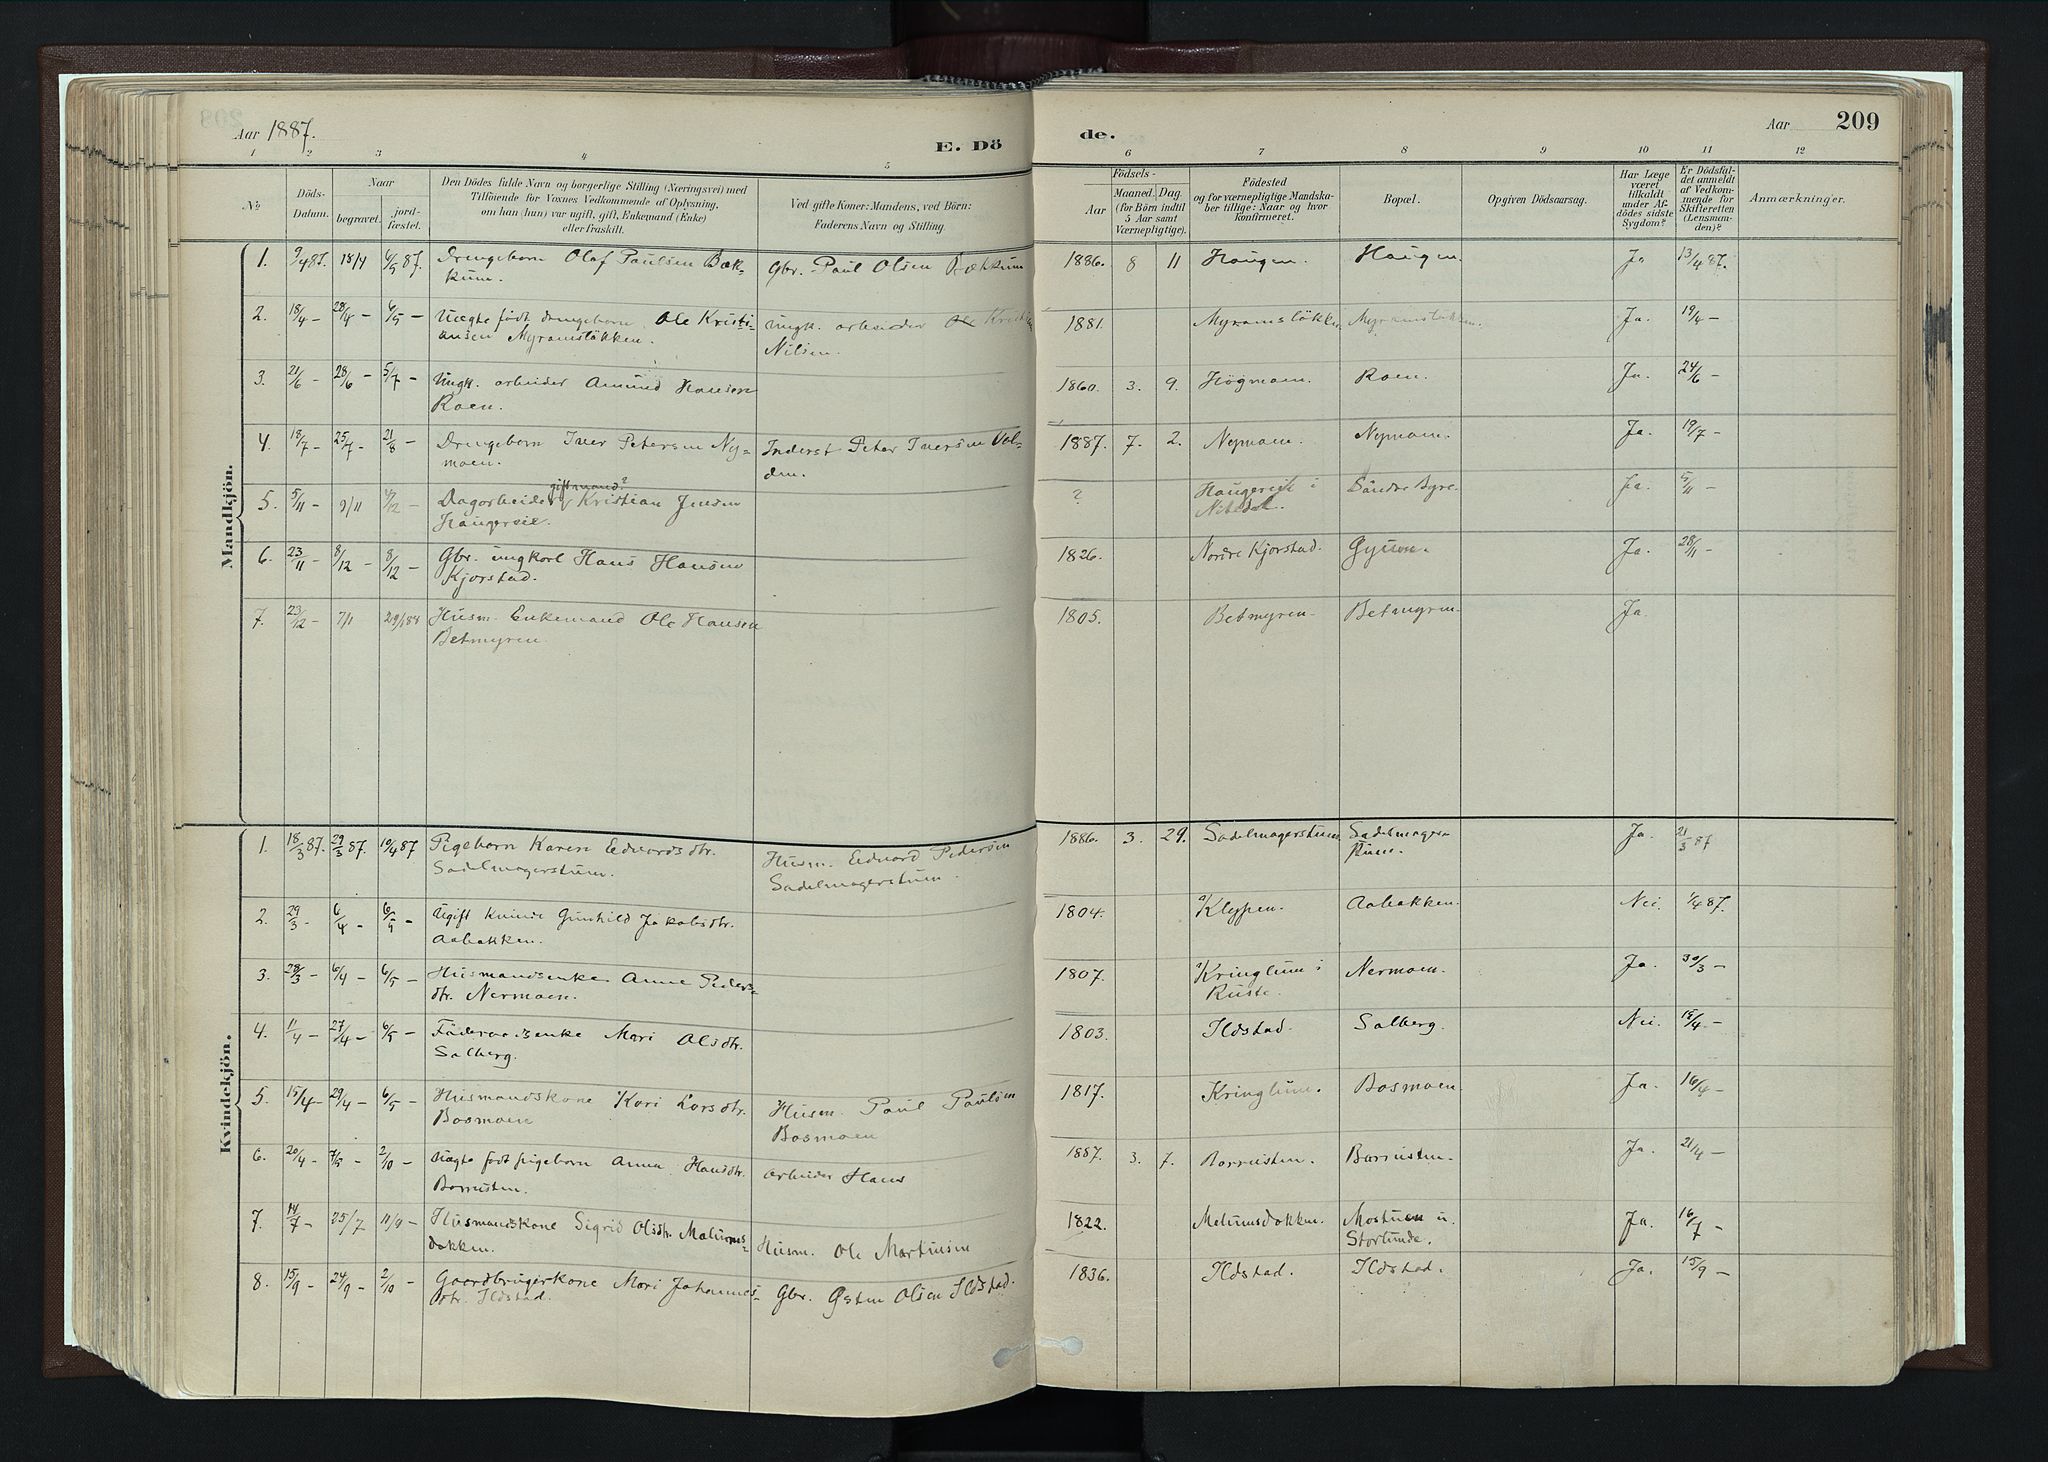 Aar 1887.
E. Dö
de.
Aar
209
1 2 3 4 5 6 7 8 9 10 11 12
No
Döds-
Datum.
Naar
begravet.
jord-
fæstet.
Den Dödes fulde Navn og borgerlige Stilling (Næringsvei) med
Tilföiende for Voxnes Vedkommende af Oplysning,
om han (hun) var ugift, gift, Enkemand (Enke)
eller fraskilt.
Ved gifte Koner: Mandens, ved Börn:
Faderens Navn og Stilling.
Födsels-
Aar
Maaned.
Dag.
(for Börn indtil
5 Aar samt
Værnepligtige).
Födested
og for værnepligtige Mandska-
ber tillige: Naar og hvor
konfirmeret.
Bopæl.
Opgiven Dödsaarsag.
Har Læge
været
tilkaldt
under Af-
dödes sidste
Sygdom?
Er Dödsfal-
det anmeldt
af Vedkom-
mende for
Skifteretten
(Lensman-
den)?
Anmærkninger.
Mandkjön.
1. 9/4 87. 18/4 6/5 87. Drengebarn Olaf Paulsen Bæk-
kum.
Gbr. Paul Olsen Bækkum
1886. 8 11 Haugen. Haugen. Ja 13/4 87.
2. 18/4 – 28/4 – 6/5 – Uægte født drengebarn Ole Kristi-
ansen Myramsløkken.
Ungk. arbeider Ole Kristian
Nilsen.
1881. Myramsløkken Myramsløkken. Ja. 19/4 –
3. 21/6 – 28/6 – 5/7 – Ungk. arbeider Amund Hansen
Roen.
1860. 3. 9. Høgmoen. Roen. Ja. 24/6 –
4. 18/7 – 25/7 – 21/8 – Drengebarn Iver Petersen Ny-
moen.
Inderst Peter Iversen Vol-
den.
1887. 7. 2. Nymoen. Nymoen. Ja. 19/7 –
5. 5/11 – 9/11 4/12 – Dagarbeider giftmand? Kristian Jensen
Haugereie.
? Haugereie i
Nitedal. Søndre Byre. Ja. 5/11 –
6. 23/11 – 8/12 – 8/12 – Gbr. ungkarl Hans Hansen
Kjorstad.
1826. Nordre Kjorstad. Ja. 28/11 –
7. 23/12 – 7/1 29/1 88 Husm. Enkemand Ole Hansen
Betmyren.
1805. Betmyren. Betmyren. Ja.
Kvindekjön.
1. 18/3 87. 29/3 87. 10/4 87 Pigebarn Karen Edvardsdtr.
Sadelmagerstuen.
Husm. Edvard Pedersen
Sadelmagerstuen.
1886. 3. 29. Sadelmagerstuen. Sadelmager-
stuen. Ja. 21/3 87
2. 29/3 – 6/4 – 6/5 – Ugift Kvinde Gunhild Jakobsdtr.
Aabakken.
1804. Klypen. Aabakken. Nei. 1/4 87.
3. 28/3 – 6/4 – 6/5 – Husmandsenke Anne Peders-
dtr. Nermoen.
1807. Kringlum i
Ruste. Nermoen. Ja. 30/3 –
4. 11/4 – 27/4 – 6/5 – Føderaadsenke Mari Olsdtr.
Solberg.
1803. Ildstad. Solberg. Nei. 15/4 –
5. 15/4 – 29/4 – 6/5 – Husmandskone Kari Larsdtr.
Bosmoen
Husm. Paul Paulsen
Bosmoen
1817. Kringlum. Bosmoen. Ja. 16/4 –
6. 20/4 – 7/5 – 2/10 – Uægte født pigebarn Anna Hansdtr.
Borrusten.
arbeider Hans
1887. 3. 7. Borrusten. Borrusten. Ja. 21/4 –
7. 14/7 – 25/7 11/9 – Husmandskone Sigrid Olsdtr. Melums-
dokken.
Husm. Ole Martinsen
1822. Melumsdokken. Mostuen u.
Storlunde. Ja. 16/7 –
8. 15/9 – 24/9 – 2/10 – Gaardbrugerkone Mari Johannes-
dtr. Ildstad.
Gbr. Østen Olsen Ildstad.
1836. Ildstad. Ildstad. Ja. 15/9 –